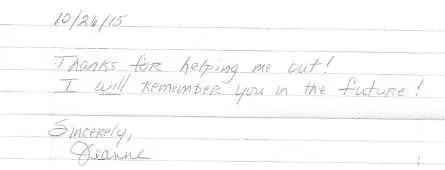 10/26/15
Thanks for helping me out!
I will remember you in the future!
Sincerely,
Deanne